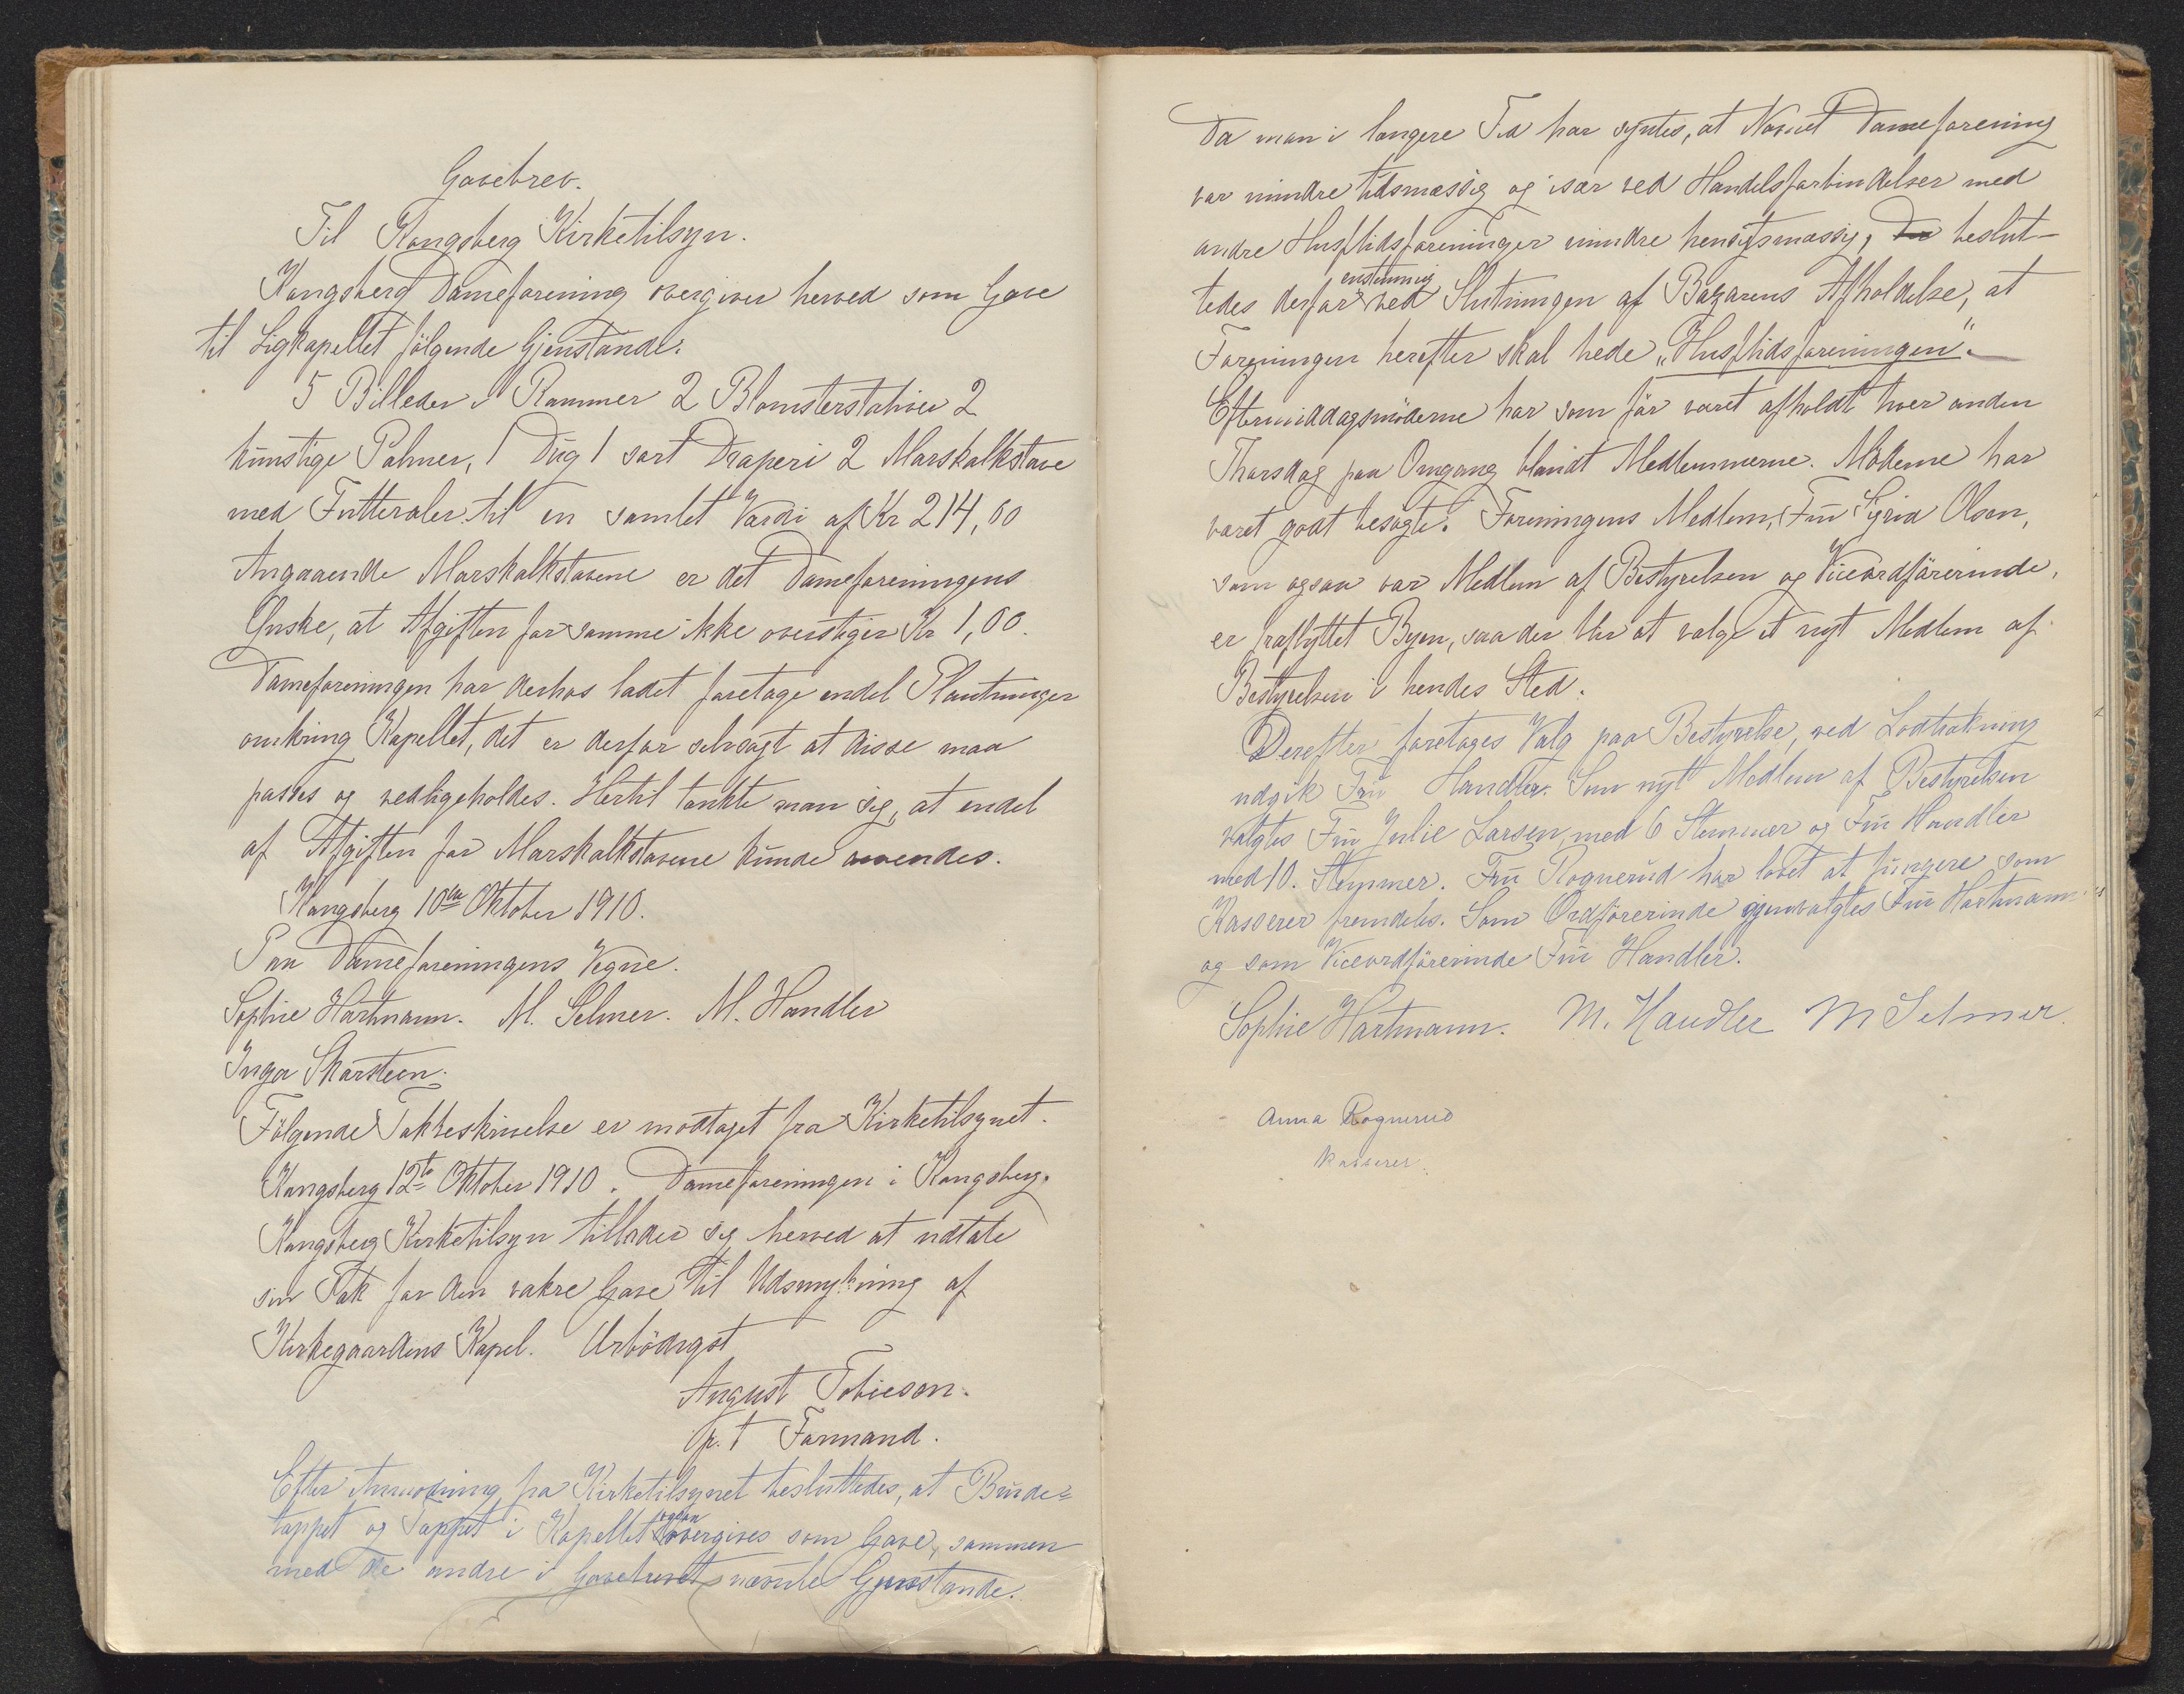 Gavebrev.
Til Kongsberg Kirketilsyn.
Kongsberg Dameforening overgiver herved som Gave
til Ligkapellet følgende Gjenstande:
5 Billeder i Rammer 2 Blomsterstativer 2
kunstige Palmer, 1 Dug 1 sort Draperi 2 Marskalkstave
med Futteraler til en samlet Værdi af Kr 214,00
Angaaende Marskalkstavene er det Dameforeningens
Ønske, at Afgiften for samme ikke overstiger Kr 1,00.
Dameforeningen har derhos ladet foretage endel Plantninger
omkring Kapellet, det er derfor selvsagt at disse maa
passes og vedligeholdes. Hertil tænkte man sig, at endel
af Afgiften for Marskalkstavene kunde anvendes.
Kongsberg 10de Oktober 1910.
Paa Dameforeningens Vegne.
Sophie Hartmann. M. Selmer. M. Handler
Inga Skarsteen.
Følgende Takkeskrivelse er modtaget fra Kirketilsynet.
Kongsberg 12te Oktober 1910. Dameforeningen i Kongsberg.
Kongsberg Kirketilsyn tillader sig herved at udtale
sin Tak for den vakre Gave til Udsmykning af
Kirkegaardens Kapel. Ærbödigst
August Tobiesen.
p. t Formand.
Efter Anmodning fra Kirketilsynet besluttedes, at Baarde=
tæppet og Tæppet i Kapellet ogsaa overgives som Gave, sammen
med de andre i Gavebrevet nævnte Gjenstande.
Da man i længere Tid har syntes, at Navnet Dameforening
var mindre tidsmæssig og især ved Handelsforbindelser med
andre Husflidsforeninger mindre hensigtsmæssig, beslut-
tedes derfor enstemmig ved Slutningen af Bazarens Afholdelse, at
Foreningen herefter skal hede „Husflidsforeningen".
Eftermiddagsmöderne har som för været afholdt hver anden
Thorsdag paa Omgang blandt Medlemmerne. Möderne har
været godt besögte. Foreningens Medlem, Fru Sigrid Olsen,
som ogsaa var Medlem af Bestyrelsen og Viceordförerinde,
er fraflyttet Byen, saa der blir at vælge et nyt Medlem af
Bestyrelsen i hendes Sted.
Derefter foretages Valg paa Bestyrelse, ved Lodtrækning
udgik Fru Handler. Som nyt Medlem af Bestyrelsen
valgtes Fru Julie Larsen, med 6 Stemmer og Fru Handler
med 10. Stemmer. Fru Rognerud har lovet at fungere som
Kasserer fremdeles. Som Ordförerinde gjenvalgtes Fru Hartmann
og som Viceordförerinde Fru Handler.
Sophie Hartmann. M. Handler M Selmer.
Anna Rognerud
Kasserer.